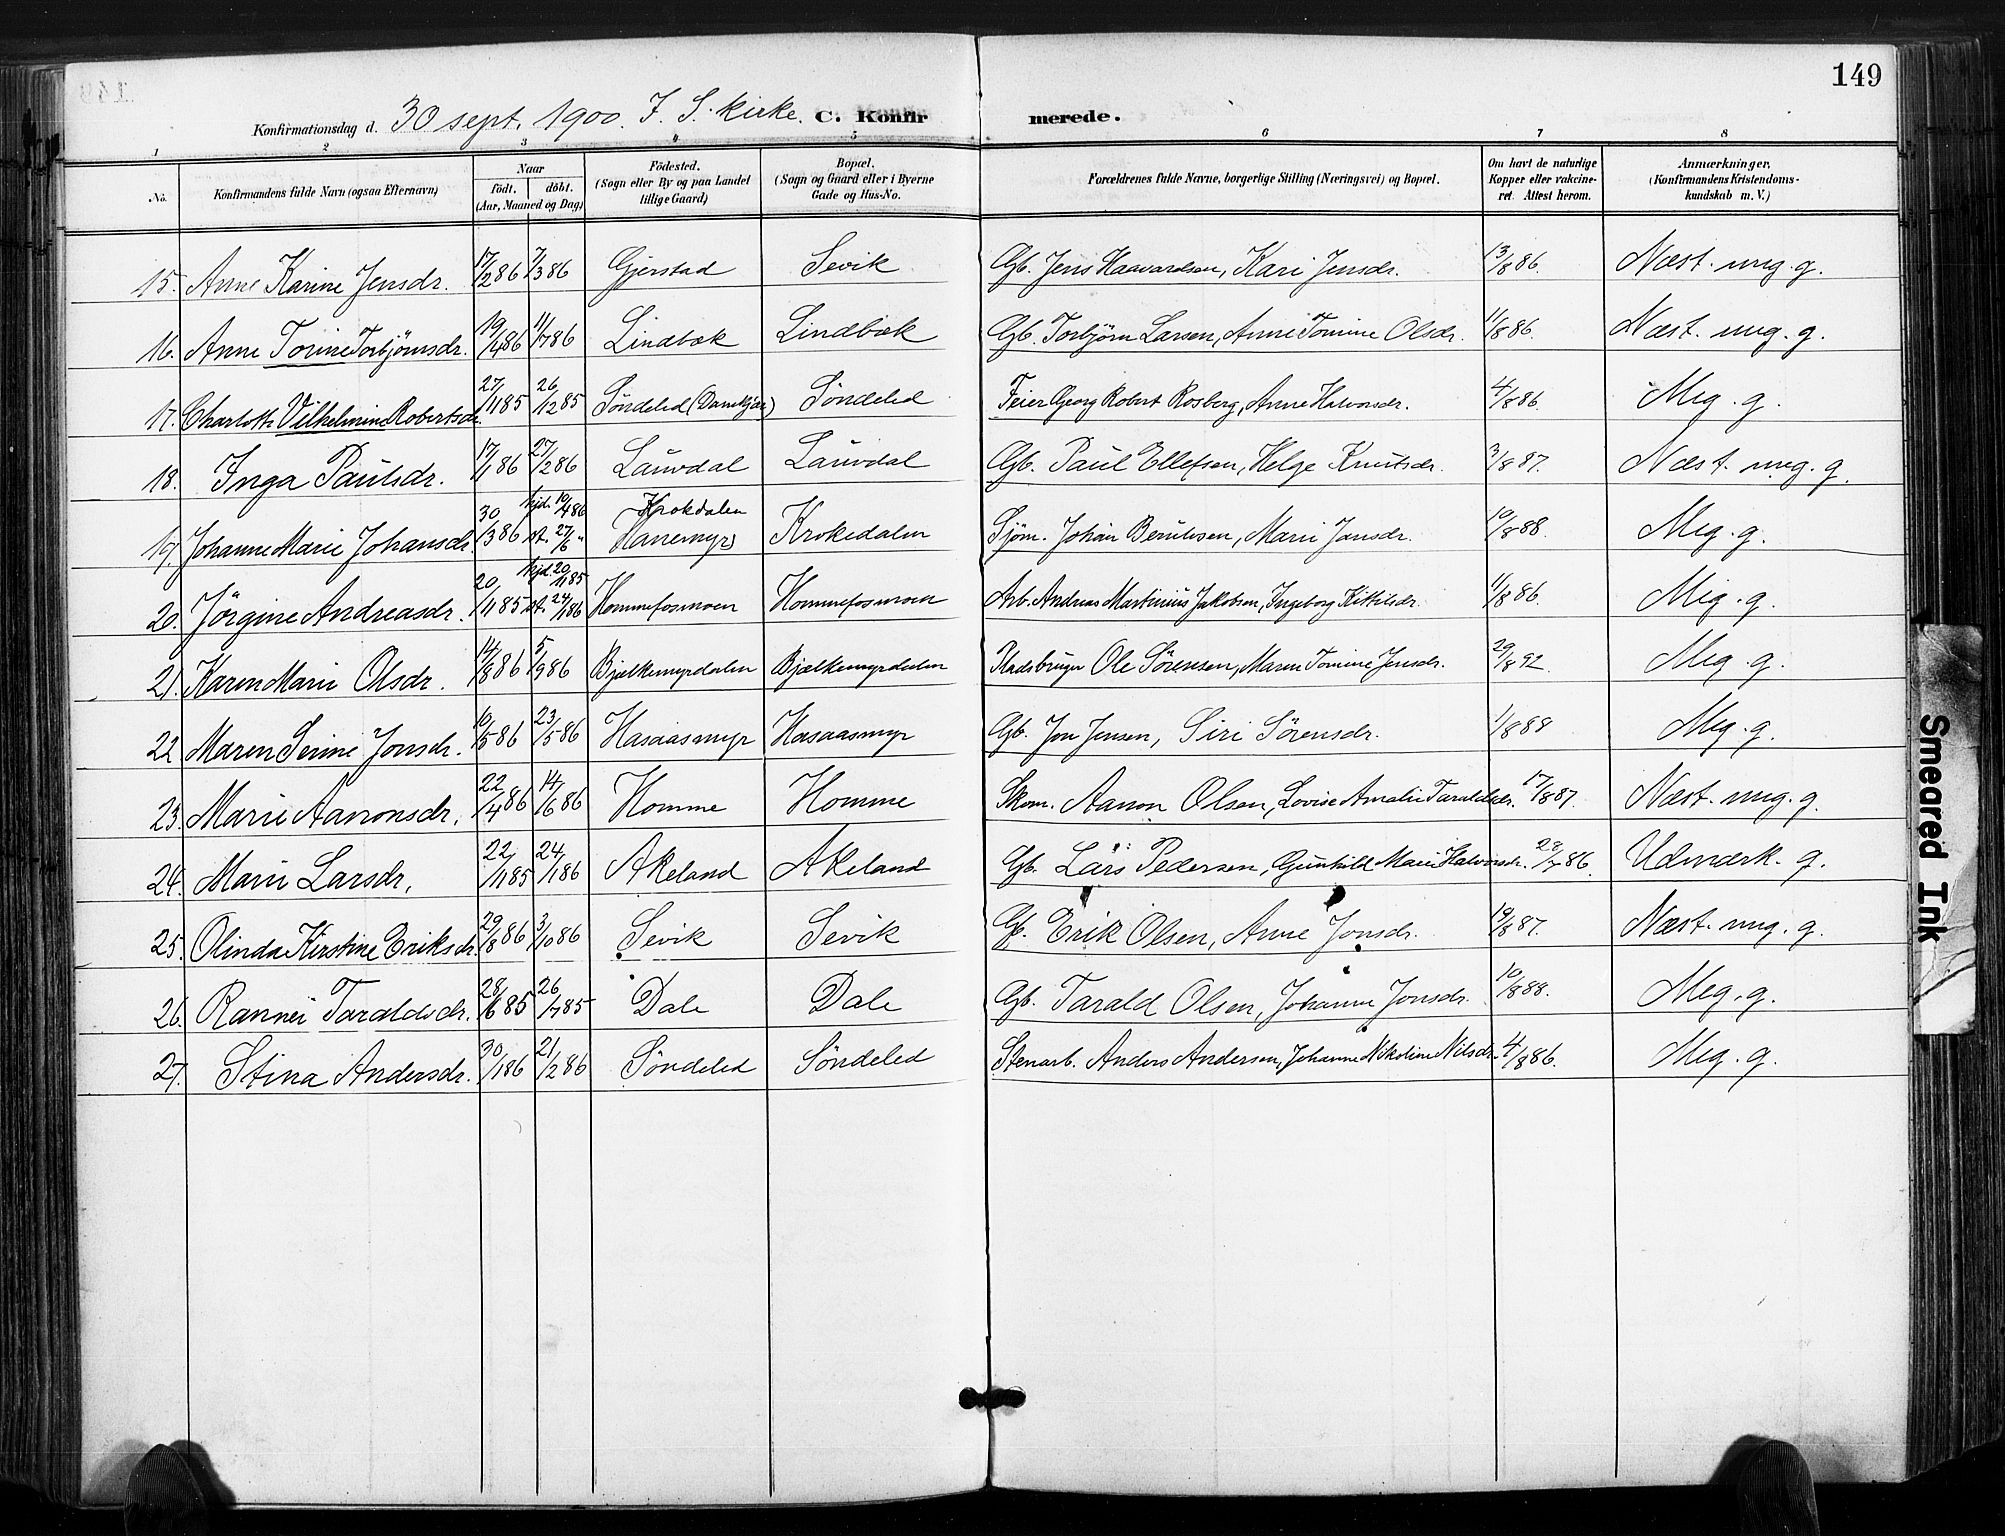 149
Konfirmationsdag d. 30 sept. 1900. I S. kirke. C. Konfirmerede.
1 2 3 4 5 6 7 8
No. Konfirmandens fulde Navn (ogsaa Efternavn) Naar födt. döbt. (Aar, Maaned og Dag) Födested. (Sogn eller By og paa Landet tillige Gaard) Bopæl. (Sogn og Gaard eller i Byerne Gade og Hus-No. Forældrenes fulde Navne, borgerlige Stilling (Næringsvei) og Bopæl. Om havt de naturlige Kopper eller vakcineret. Attest herom. Anmærkninger. (Konfirmandens Kristendomskundskab m. V.)
15. Anne Karine Jensdr. 17/2 86 7/3 86 Gjerstad Sevik Gb. Jens Haavardsen, Kari Jensdr. 13/8 86. Næst. meg. g.
16. Anne Torine Torbjörnsdr. 19/4 86 11/7 86 Lindbæk Lindbæk Gb. Torbjörn Larsen, Anne Tomine Olsdr. 11/8 86. Næst. meg. g.
17. Charlotte Vilhelmine Robertsdr. 27/11 85 26/12 85 Söndeled (Damkjær) Söndeled Feier Georg Robert Rosberg, Anne Halvorsdr. 4/8 86. Meg. g.
18. Inga Paulsdr. 17/1 86 27/2 86 Lauvdal Lauvdal Gb. Paul Ellefsen, Helge Knutsdr. 3/8 87. Næst. meg. g.
19. Johanne Marie Johansdr. 30/3 86 hjd. 10/4 86 st. 27/6 " Krokdalen Hanemyr Krokedalen Sjöm. Johan Berntsen, Marie Jansdr. 10/8 88. Meg. g.
20. Jörgine Andreasdr. 20/11 85 hjd. 20/11 85 st. 24/1 86 Hommefosmoen Hommefosmoen Arb. Andreas Martinius Jakobsen, Ingeborg Kittilsdr. 11/8 86. Meg. g.
21. Karen Marie Olsdr. 14/8 86 5/9 86 Bjelkemyrdalen Bjælkemyrdalen Pladsbruger Ole Sörensen, Maren Tomine Jensdr. 29/8 92. Meg. g.
22. Maren Serine Jonsdr. 10/5 86 23/5 86 Hasaasmyr Hasaasmyr Gb. Jon Jensen, Siri Sörensdr. 1/8 88 Meg. g.
23. Marie Aanonsdr. 22/4 86 14/6 86 Homme Homme Skom. Aanon Olsen, Lovise Amalie Taraldsdr. 17/8 87. Næst. meg. g.
24. Marie Larsdr. 22/11 85 24/1 86 Akeland Akeland Gb. Lars Pedersen, Gunhild Marie Halvorsdr. 28/7 86. Udmærk. g.
25. Olinda Kirstine Eriksdr. 29/8 86 3/10 86 Sevik Sevik Gb. Erik Olsen, Anne Jonsdr. 19/8 87. Næst. meg. g.
26. Rannei Taraldsdr. 28/6 85 26/7 85 Dale Dale Gb. Tarald Olsen, Johanne Jonsdr. 10/8 88. Meg. g.
27. Stina Andersdr. 30/1 86 21/2 86 Söndeled Söndeled Stenarb. Anders Andersen, Johanne Nikoline Nilsdr. 4/8 86. Meg. g.
Smeared Ink